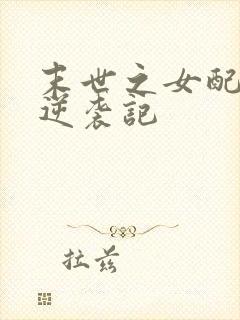 末世之女配
逆袭記
拉兹